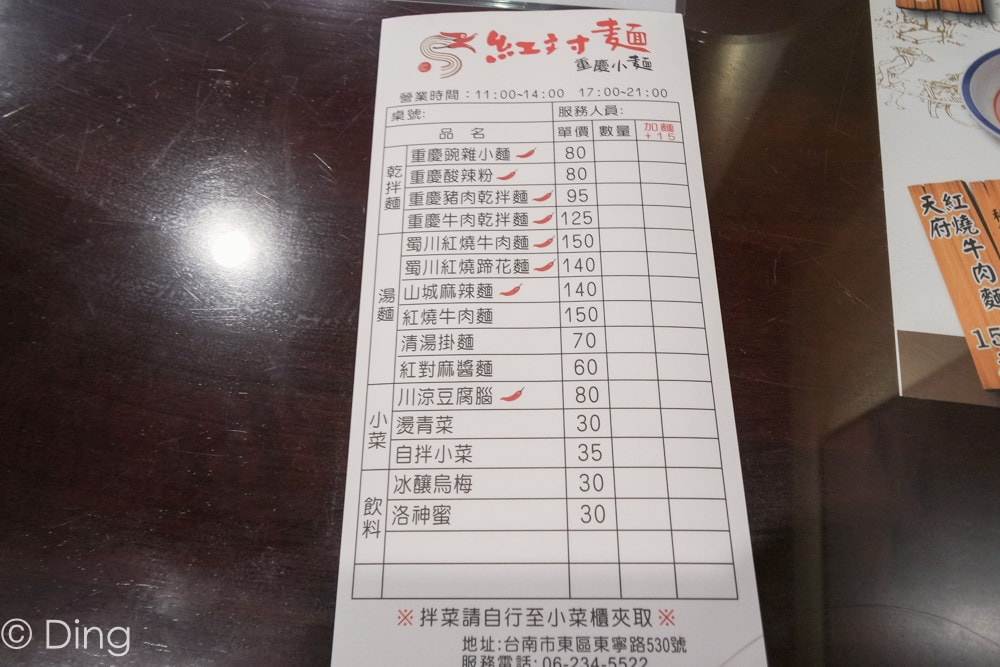 紅対麵
重慶小麵
營業時間：11:00~14:00 17:00~21:00
桌號: 服務人員:
品名 單價 數量 加麵+15
乾拌麵
重慶豌雜小麵 80
重慶酸辣粉 80
重慶豬肉乾拌麵 95
重慶牛肉乾拌麵 125
湯麵
蜀川紅燒牛肉麵 150
蜀川紅燒蹄花麵 140
山城麻辣麵 140
紅燒牛肉麵 150
清湯掛麵 70
紅對麻醬麵 60
小菜
川涼豆腐腦 80
燙青菜 30
自拌小菜 35
飲料
冰釀烏梅 30
洛神蜜 30
※拌菜請自行至小菜櫃夾取※
地址:台南市東區東寧路530號
服務電話:06-234-5522
天府
紅燒牛肉麵
© Ding